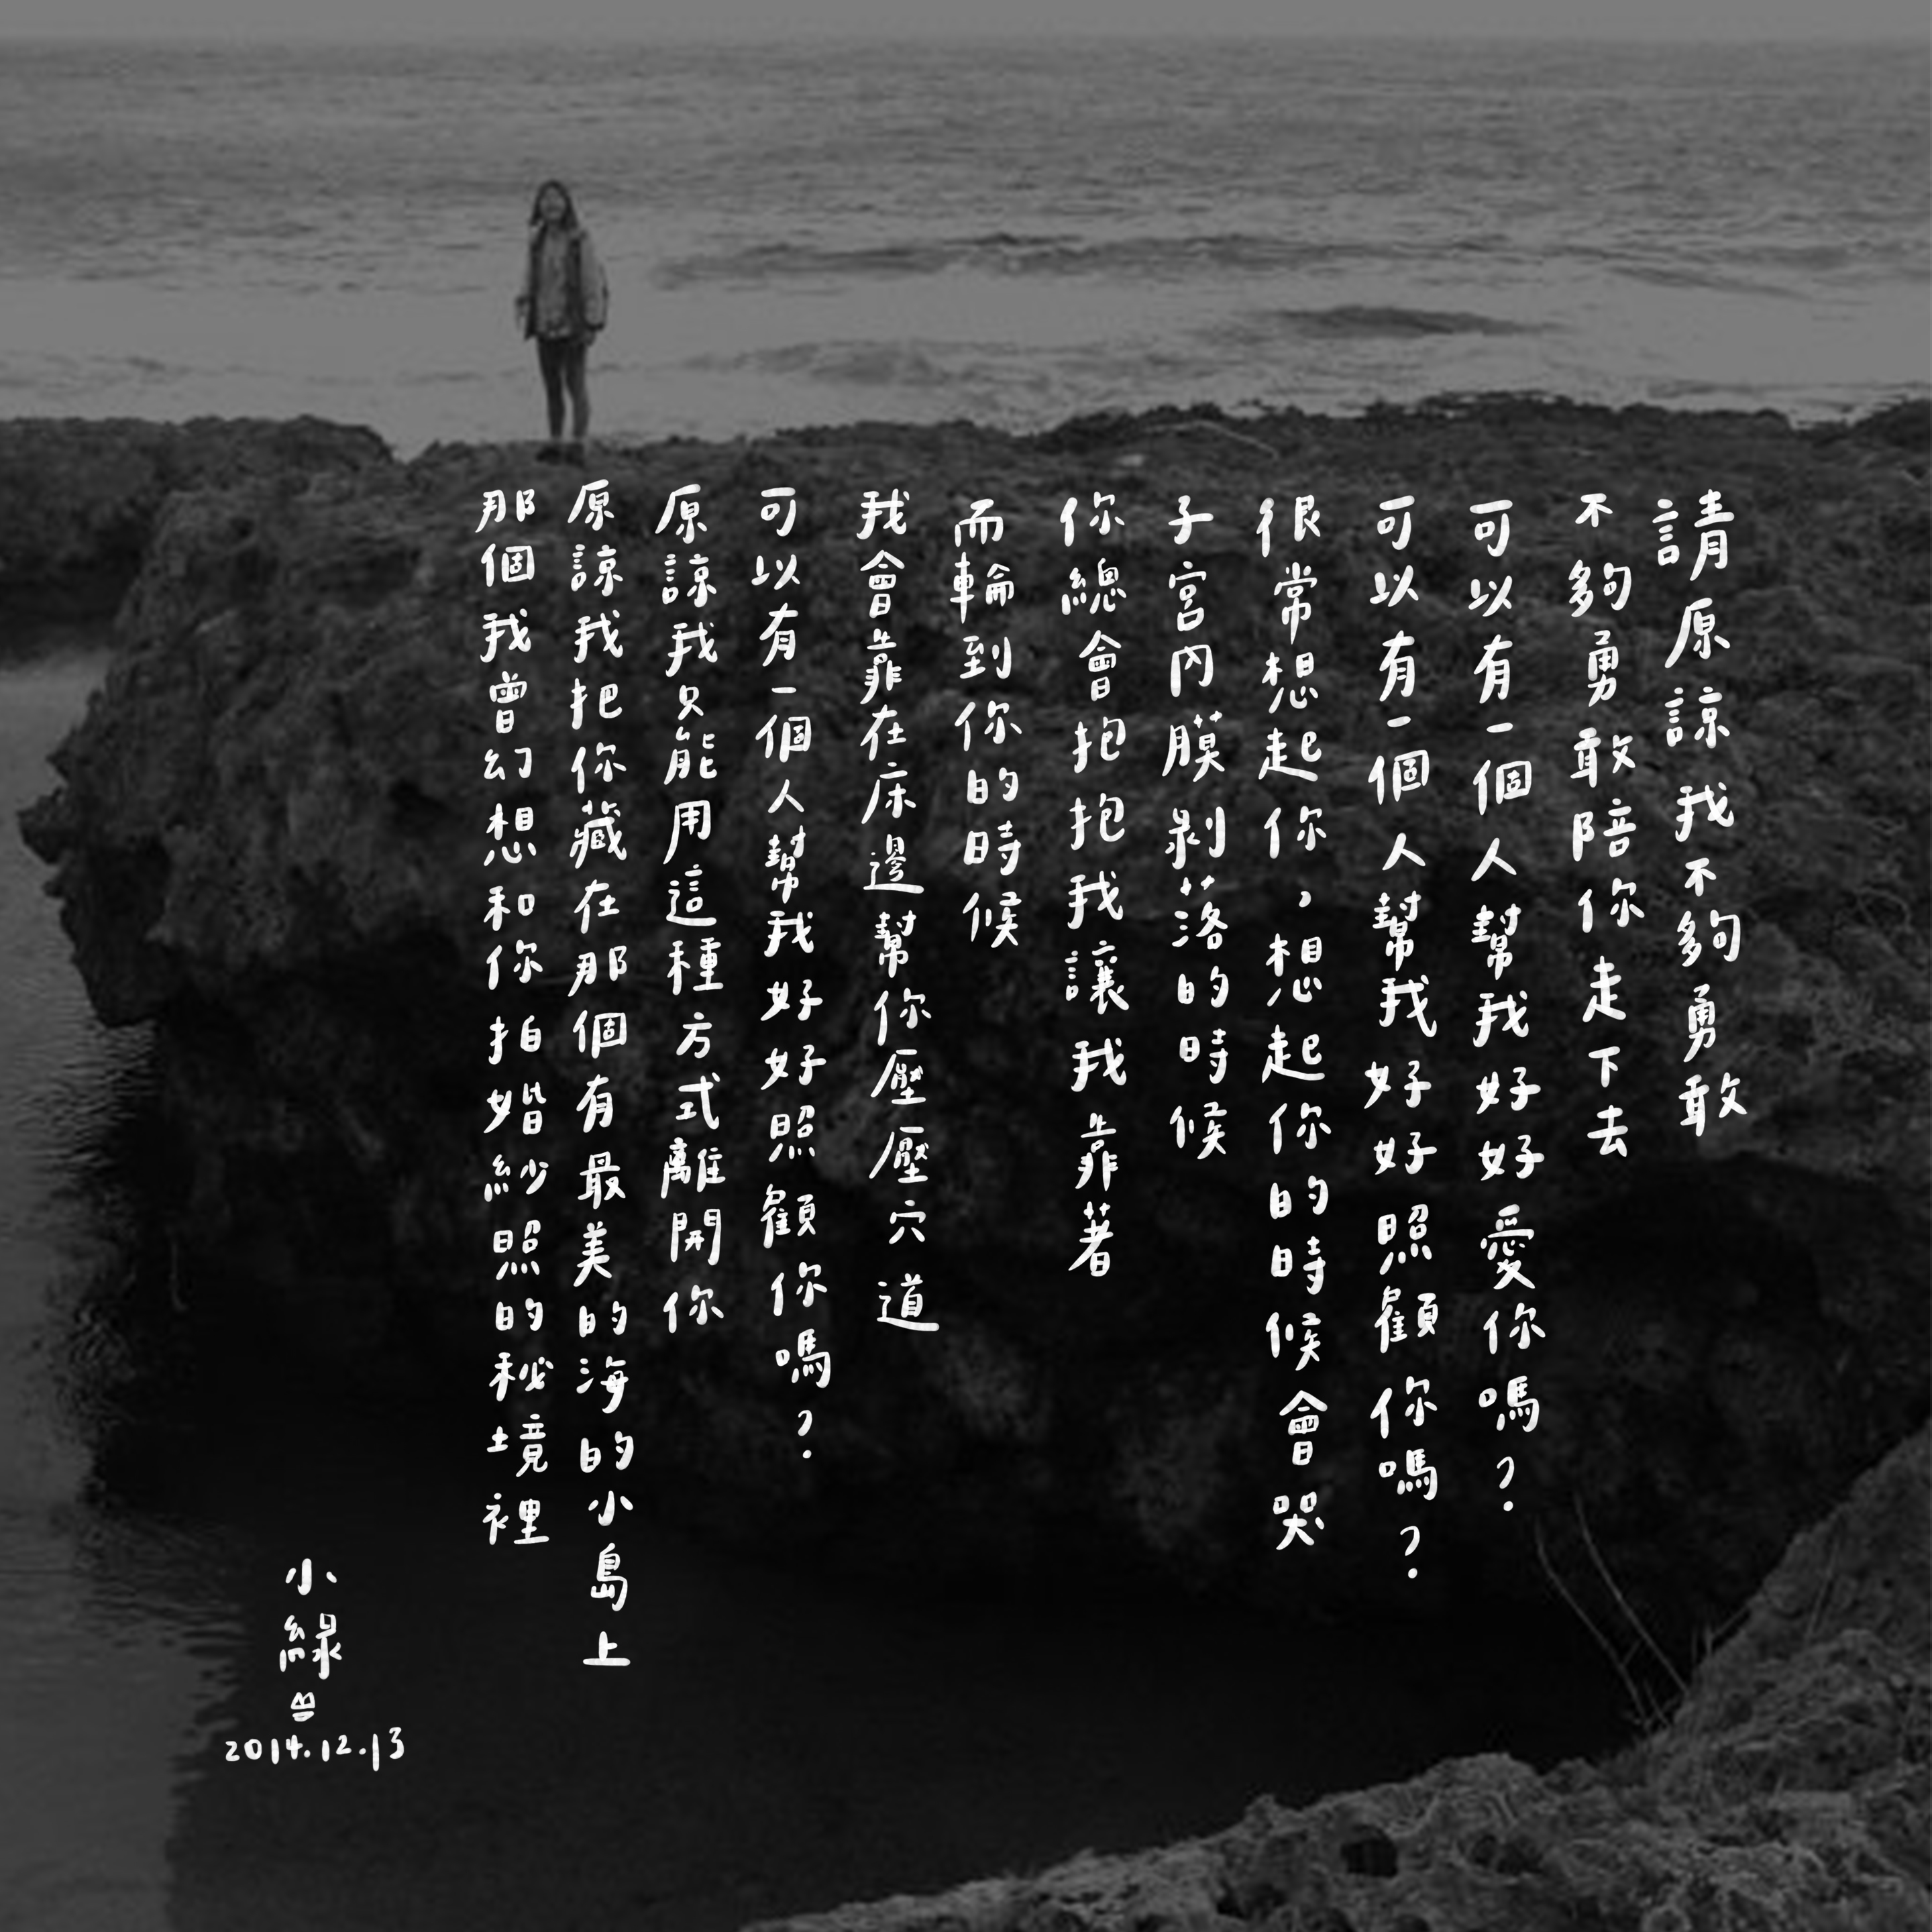 請原諒我不夠勇敢
不夠勇敢陪你走下去
可以有一個人幫我好好愛你嗎？
可以有一個人幫我好好照顧你嗎？
很常想起你，想起你的時候會哭
子宮內膜剝落的時候
你總會抱抱我讓我靠著
而輪到你的時候
我會靠在床邊幫你壓壓穴道
可以有一個人幫我好好照顧你嗎？
原諒我只能用這種方式離開你
原諒我把你藏在那個有最美的海的小島上
那個我曾幻想和你拍婚紗照的秘境裡
小綠
2014.12.13